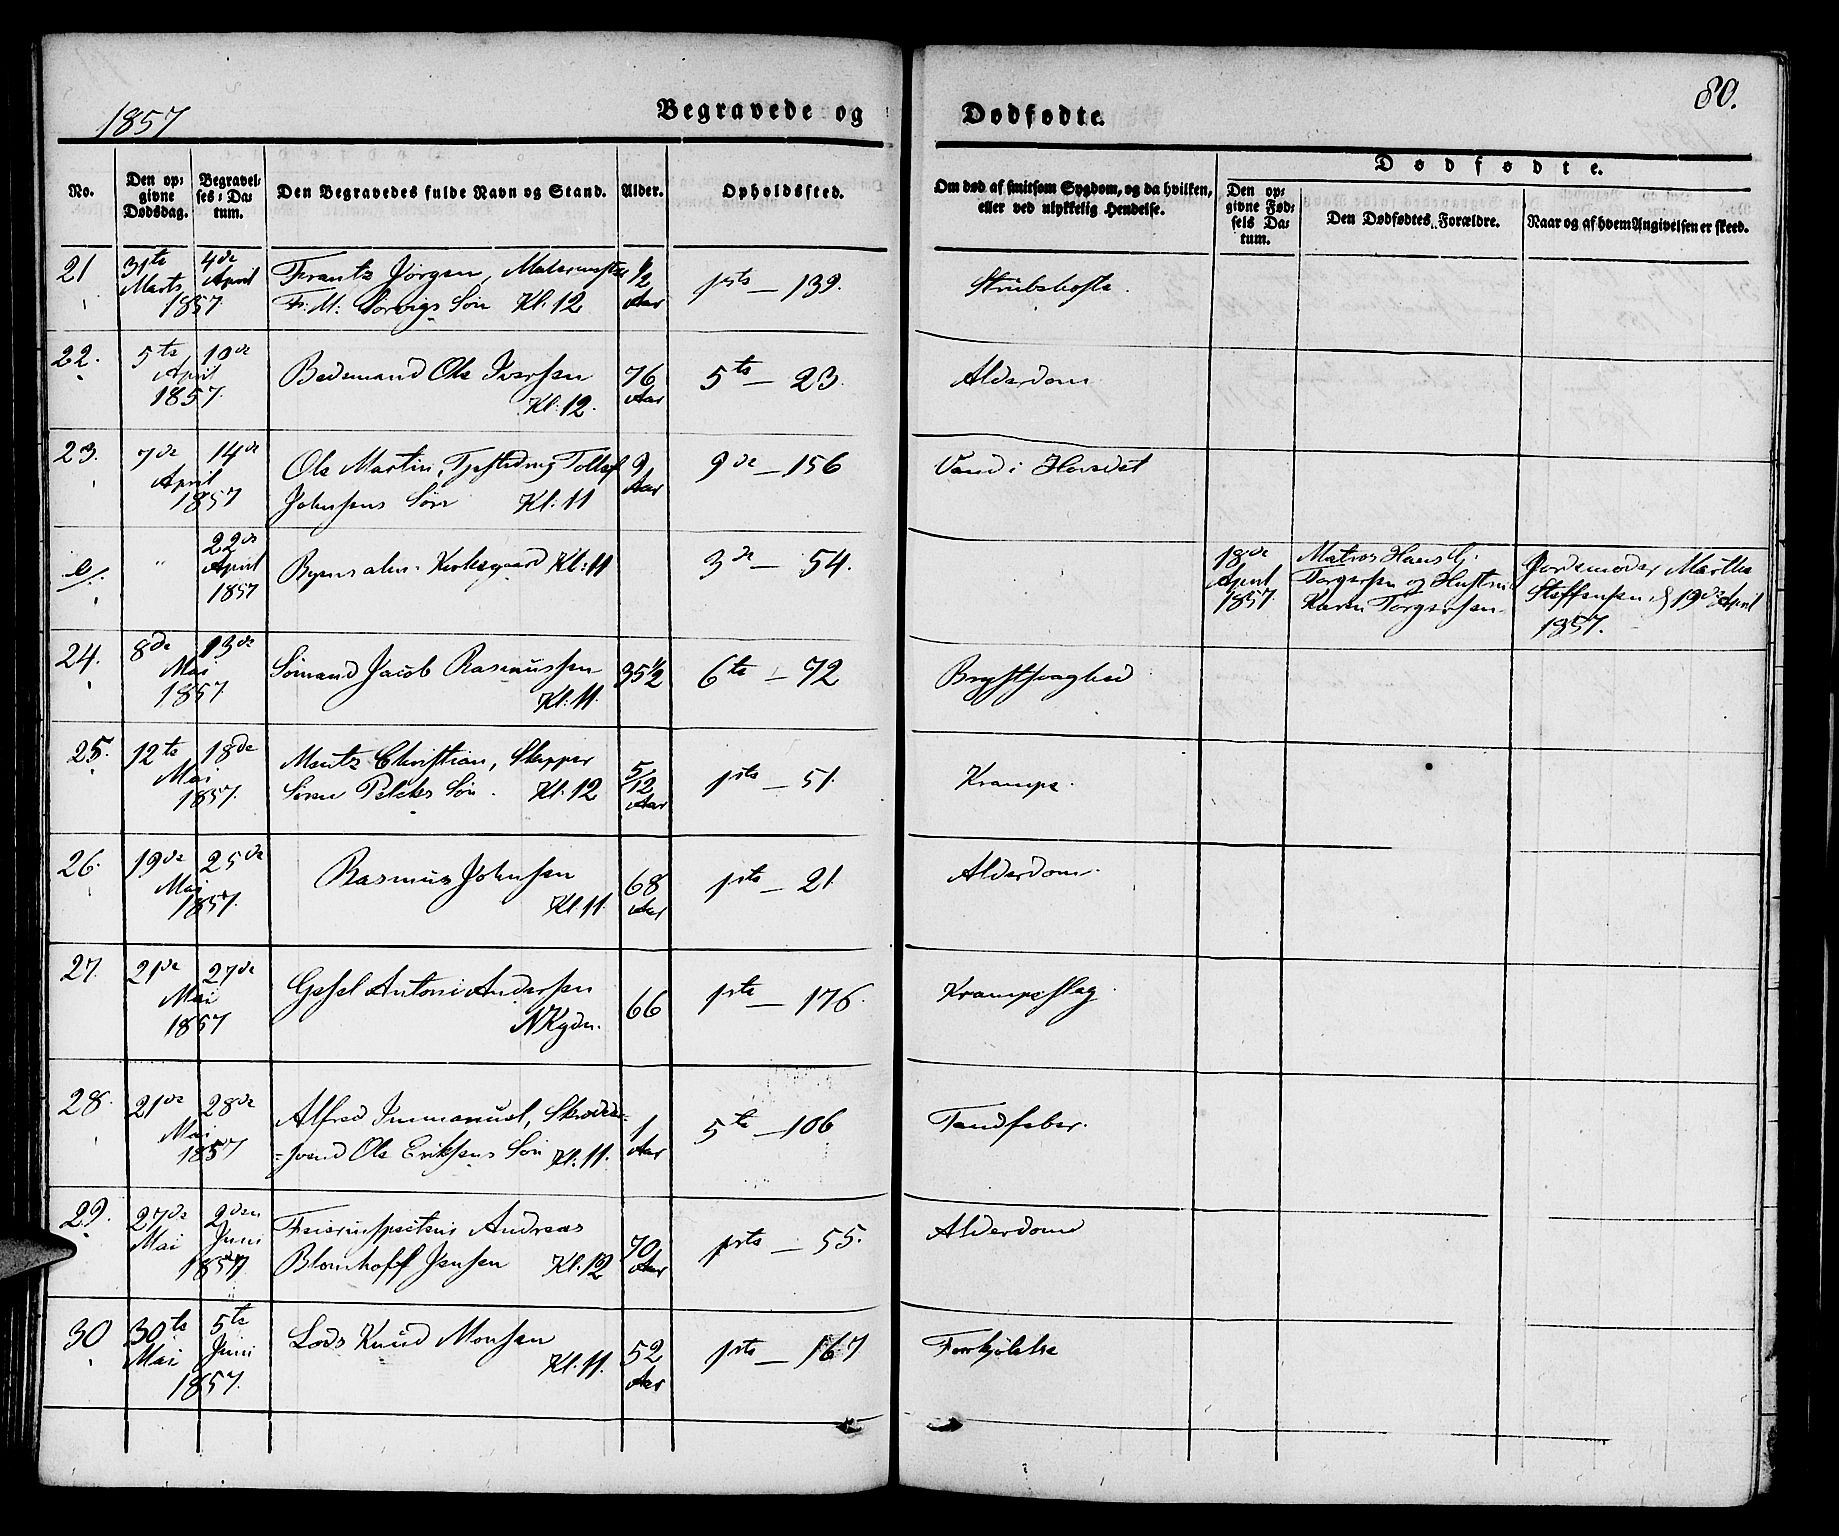 1857
Begravede og
Dødfødte.
80.
No.
Den op-
givne
Dødsdag.
Begravel-
ses-Da-
tum.
Den Begravedes fulde Navn og Stand.
Alder.
Opholdssted.
Om død af smitsom Sygdom, og da hvilken,
eller ved ulykkelig Hendelse.
Dødfødte.
Den op-
givne Fød-
sels Da-
tum.
Den Dødfødtes Forældre.
Naar og af hvem Angivelsen er skeed.
21 31te Marts 4de April 1857
Frantz Jørgen, Malermester
Fr. M. Sørvigs Søn Kl: 12
1/2 Aar
1ste — 139.
Strubehoste.
22. 5te 10de April 1857.
Bedemand Ole Iversen
Kl: 12.
76 Aar
5te — 23.
Alderdom.
23. 7de 14de April 1857
Ole Martin, Tollef
Johnsens Søn Kl: 11
9 Aar
9de — 156
Vand i Hovedet
" 22de April 1857
Kirkegaard Kl: 11
3de — 54.
18de April 1857.
Matros Hans
Torgersen og Hustru
Karen Torgersen
Jordemoder Marthe
Steffensen, d 19de April
1857.
24. 8de 13de Mai 1857.
Sømand Jacob Rasmussen
Kl: 11.
35 1/2
6te — 72
Brystsvaghed
25. 12te 18de Mai 1857.
Mentz Christian, Skipper
Søren Søn. Kl: 12
5/12 Aar
1ste — 51.
Krampe.
26. 19de 25de Mai 1857.
Rasmus Johnsen
Kl: 11.
68 Aar
1ste — 21.
Alderdom.
27. 21de 27de Mai 1857
Gesel Antoni Andersen
66
1ste — 176.
Krampeslag.
28. 21de 28de Mai 1857
Alfred Immanuel, Skrædder-
=svend Ole Eriksens Søn Kl: 11.
1 Aar
5te — 106
Tandfeber.
29. 27de Mai 2den Juni 1857
Andreas
Blomhoff Jensen Kl: 12
70 Aar
1ste — 55.
Alderdom
30 30te Mai 5te Juni 1857.
Lods Knud Monsen
Kl: 11.
52 Aar
1ste — 167
Forkjølelse